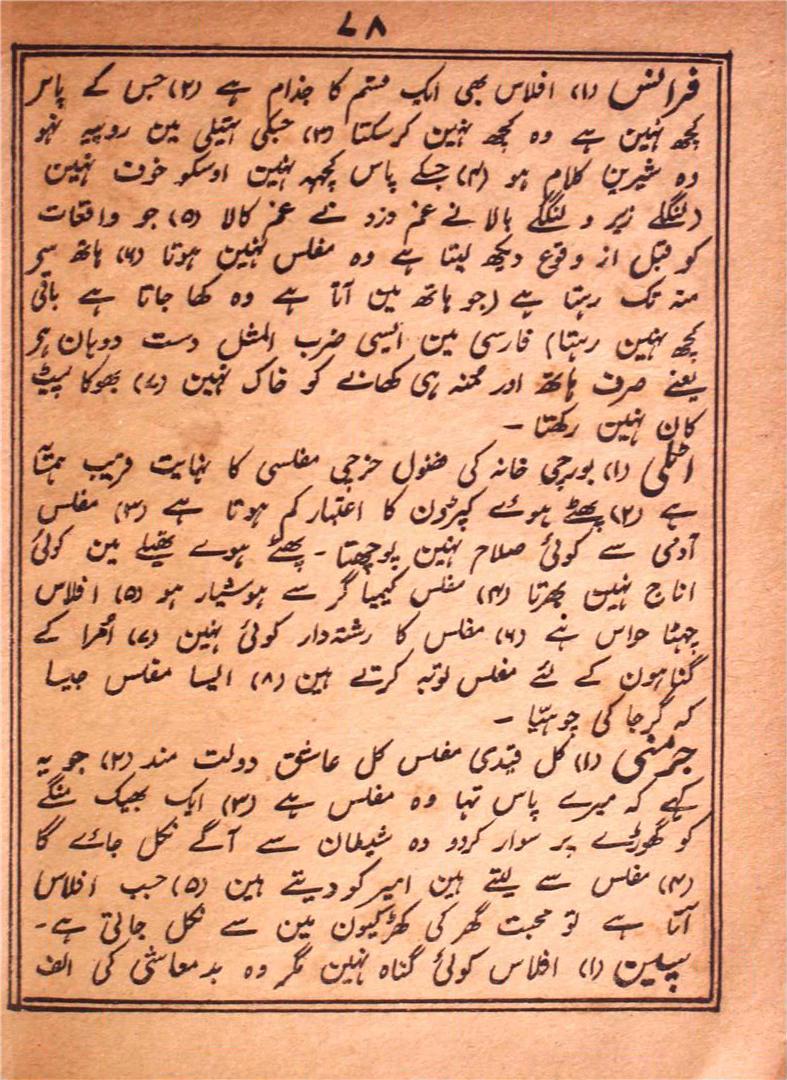 ۷۸
فرانس (۱) افلاس بھی ایک قسم کا جذام ہے (۲) جس کے پاس
کچھ نہین ہے وہ کچھ نہین کرسکتا (۳) جبکی ہتیلی مین روپیہ نہو
وہ شیرین کلام ہو (۴) جسکے پاس کچھہ نہین اوسکو خوف نہین
(لنگلے زیر و لنگلے بالا نے غم دزد نے غم کالا (۵) جو واقعات
کو قبل از وقوع دیکھ لیتا ہے وہ مفلس نہین ہوتا (۶) ہاتھ سے
منہ تک رہتا ہے (جو ہاتھ مین آتا ہے وہ کھا جاتا ہے باقی
کچھ نہین رہتا) فارسی مین ایسی ضرب المثل دست دوہان ہے
یعنے صرف ہاتھ اور مُنہ ہی کھانے کو خاک نہین (۷) بھوکا پیٹ
کان نہین رکھتا ۔
اٹلی (۱) بورچی خانہ کی فضول خرچی مفلسی کا نہایت قریب ہمتا
ہے (۲) پھٹے ہوے کپڑون کا اعتبار کم ہوتا ہے (۳) مفلس
آدمی سے کوئی صلاح نہین پوچھتا ۔ پھٹے ہوے تھیلے مین کوئی
اناج نہین بھرتا (۴) مفلس کیمیا گر سے ہوشیار ہو (۵) افلاس
چھٹا حواس ہے (۶) مفلس کا رشتہ دار کوئی نہین (۷) اُمرا کے
گناہون کے لئے مفلس توبہ کرتے ہین (۸) ایسا مفلس جیسا
کہ گرجا کی چوہیا ۔
جرمنی (۱) کل قیدی مفلس کل عاشق دولت مند (۲) جو یہ
کہے کہ میرے پاس تہا وہ مفلس ہے (۳) ایک بھیک منگے
کو گھوڑے پر سوار کردو وہ شیطان سے آگے نکل جاے گا
(۴) مفلس سے لیتے ہین امیر کو دیتے ہین (۵) جب افلاس
آتا ہے تو محبت گھر کی کھڑکیون مین سے نکل جاتی ہے ۔
سپین (۱) افلاس کوئی گناہ نہین مگر وہ بدمعاشی کی الف